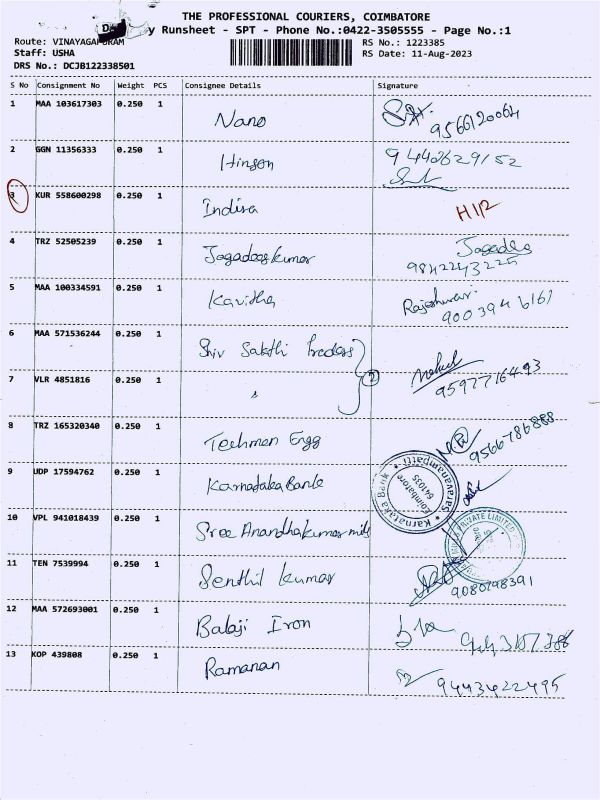 THE PROFESSIONAL COURIERS, COIMBATORE
y Runsheet - SPT - Phone No.:0422-3505555 - Page No.:1
Route: VINAYAGAPURAM
RS No.: 1223385
Staff: USHA
RS Date: 11-Aug-2023
DRS No.: DCJB122338501
S No Consignment No Weight PCS Consignee Details Signature
1 MAA 103617303 0.250 1 Nano 9566120064
2 GGN 11356333 0.250 1 Hinson 9440629152
3 KUR 558600298 0.250 1 Indira
4 TRZ 52505239 0.250 1 Jagadeeskumar Jagadees
9842243225
5 MAA 100334591 0.250 1 Kavitha Rajeshwari
9003946161
6 MAA 571536244 0.250 1 Shiv Sakthi Traders
7 VLR 4851816 0.250 1 " 2 9597716493
8 TRZ 165320340 0.250 1 Techmen Engg 9566786888
9 UDP 17594762 0.250 1 Karnataka Bank
Karnataka Bank Saravanampatti Coimbatore 641035
10 VPL 941018439 0.250 1 Sree Anandhakumar mills
PRIVATE LIMITED
11 TEN 7539994 0.250 1 Senthil Kumar 9080798391
12 MAA 572693001 0.250 1 Balaji Iron
13 KOP 439808 0.250 1 Ramanan 9443422495